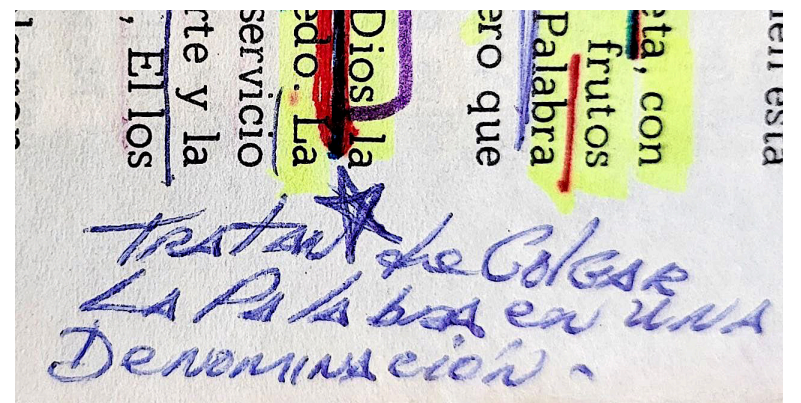 está
eta, con
frutos
Palabra
ero que
Dios la
edo. La
servicio
rte y la
, El los
Tratan de Colgar
La Palabra en una
Denominación.